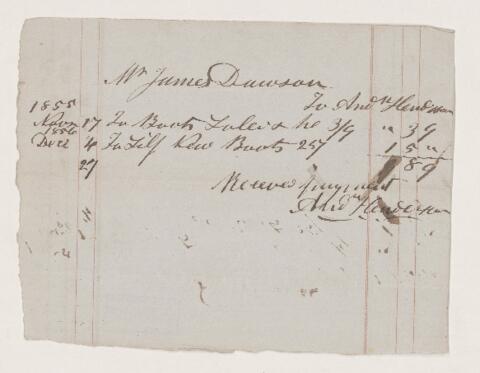 Mr James Dawson
To Andw Henderson
1855
Novr 17 To Boots Soled & he 3/9 " 3 9
1856
Decr 4 To Self New Boots 25/ 1 5 "
27 1 8 9
Received payment
Andw Henderson